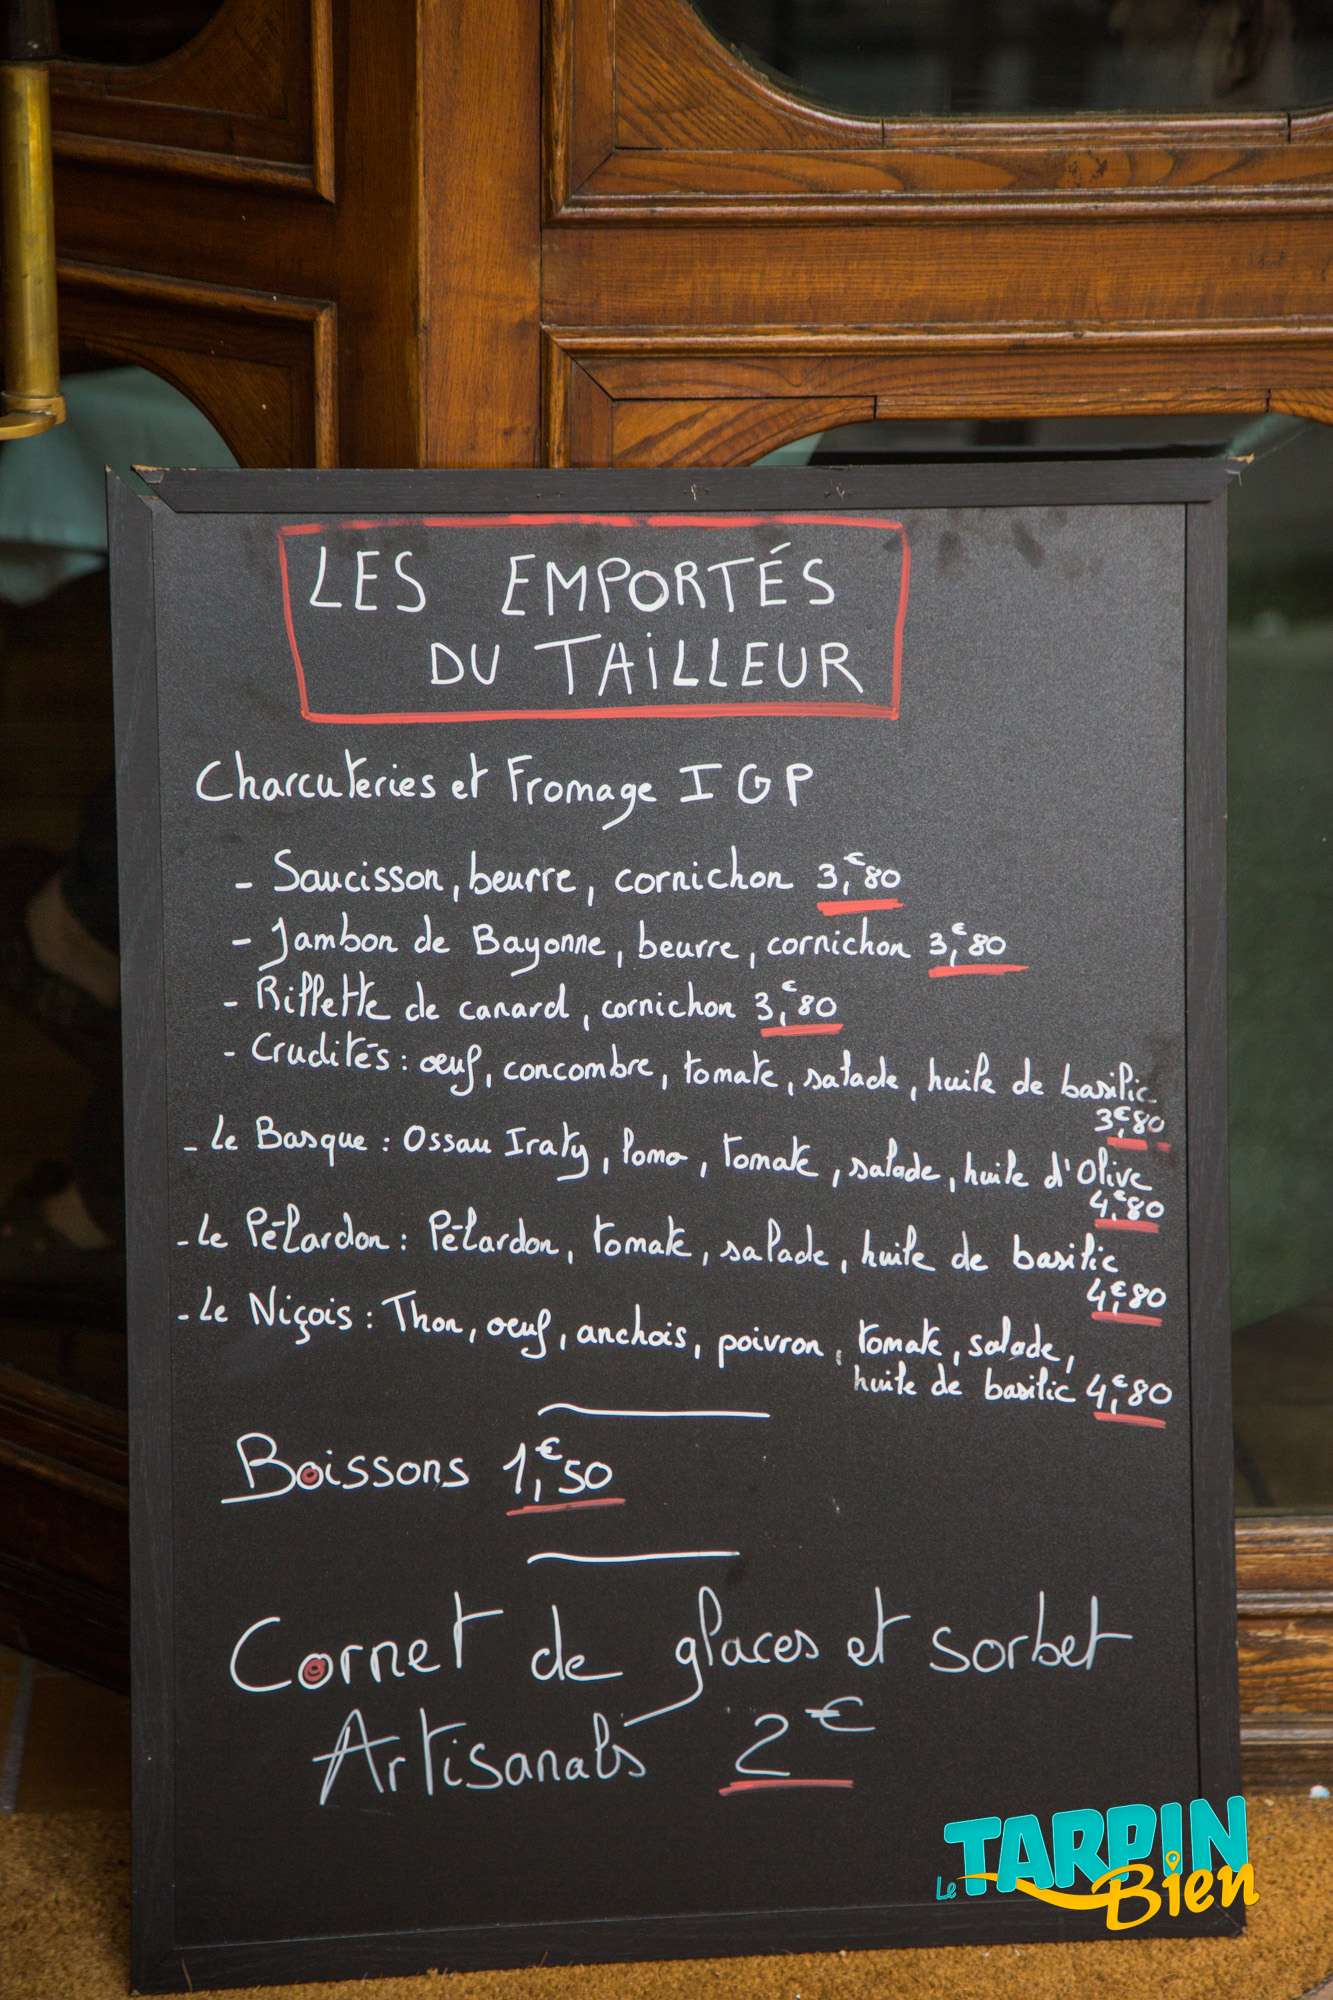 LES EMPORTÉS
DU TAILLEUR
Charcuteries et Fromage IGP
- Saucisson, beurre, cornichon 3,€80
- Jambon de Bayonne, beurre, cornichon 3,€80
- Rillette de canard, cornichon 3,€80
- Crudités : œuf, concombre, tomate, salade, huile de basilic
3,€80
- Le Basque : Ossau Iraty, lomo, tomate, salade, huile d'Olive
4,€80
- Le Pélardon : Pélardon, tomate, salade, huile de basilic
4,€80
- Le Niçois : Thon, œuf, anchois, poivron, tomate, salade,
huile de basilic 4,€80
Boissons 1,€50
Cornet de glaces et sorbet
Artisanals 2€
Le TARPIN
Bien